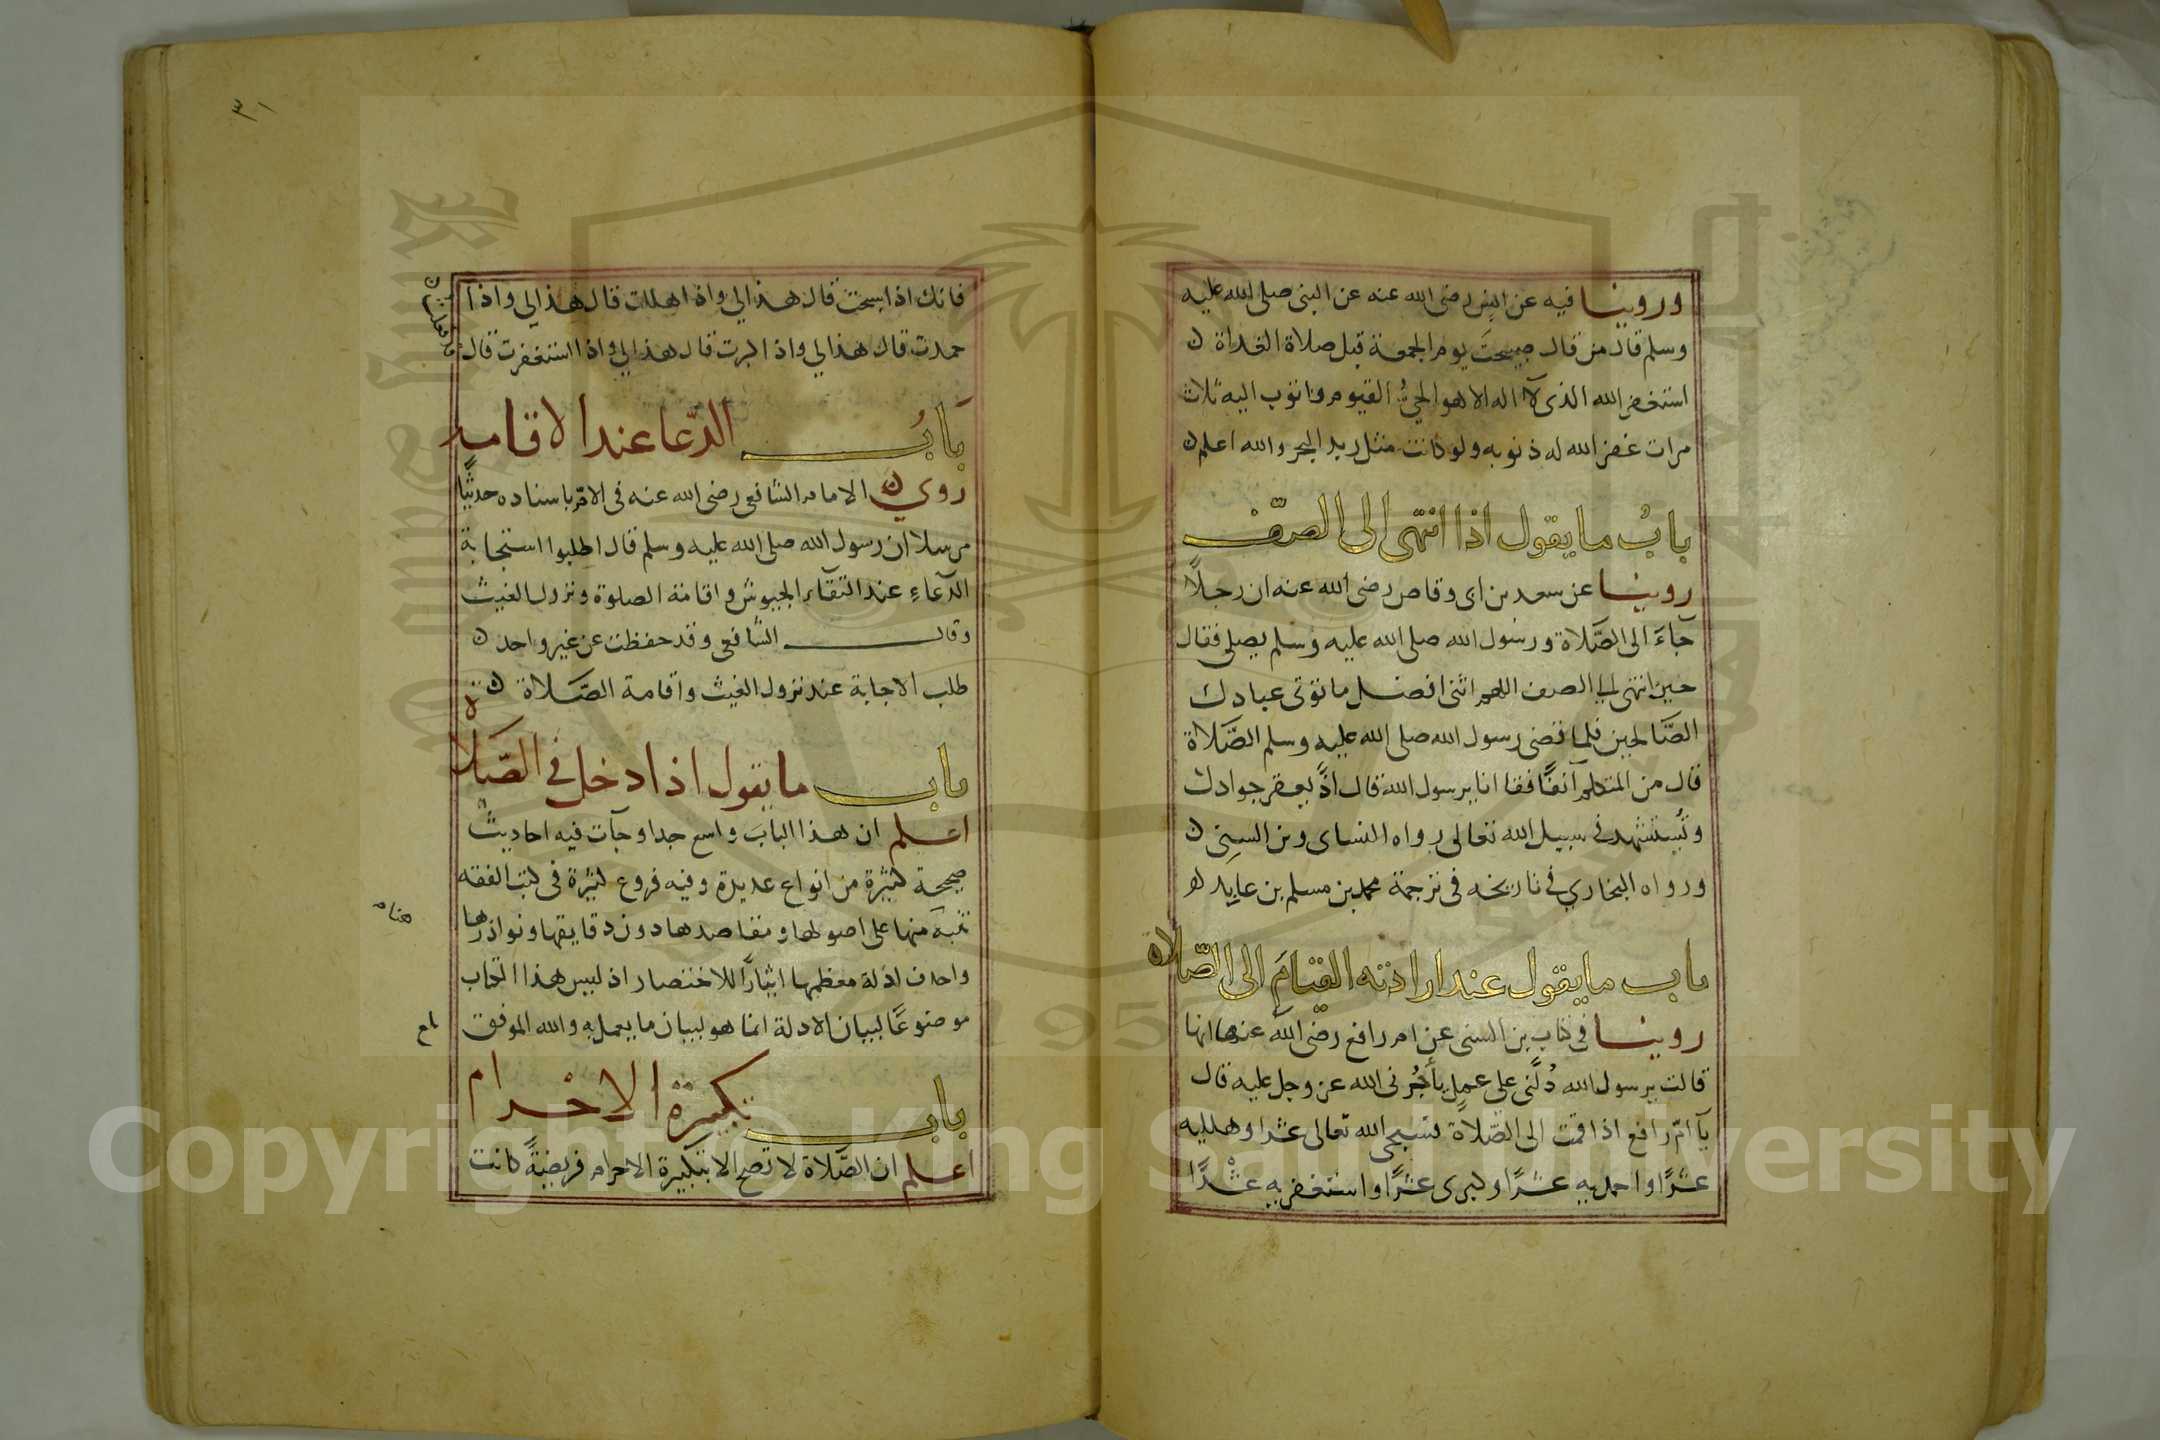 وروينا فيه عن انس رضى الله عنه عن النبى صلى الله عليه
وسلم قال من قال صبيحت يوم الجمعة قبل صلاة الغداة
استغفر الله الذى لا اله الا هو الحيُّ القيوم واتوب اليه ثلاث
مرات غفر الله له ذنوبه ولو كانت مثل زبد البحر والله اعلم
بابُ ما يقول اذا انتهى الى الصفّ
روينا عن سعد بن ابى وقاص رضى الله عنه ان رجلاً
جآءَ الى الصَّلاة ورسول الله صلى الله عليه وسلم يصلى فقال
حين انتهى الى الصف اللهم اتنى افضل ما توتى عبادك
الصَّالحين فلما قضى رسول الله صلى الله عليه وسلم الصَّلاة
قال من المتكلم آنفًا فقا انا يرسول الله قال اذًا يعقر جوادك
وتُستشهد فى سبيل الله تعالى رواه النساى وبن السنِى
ورواه البخاري فى تاريخه فى ترجمة محمد بن مسلم بن عايد
باب ما يقول عند ارادته القيام الى الصّلاه
روينا فى كتاب بن السنى عن ام رافع رضى الله عنها انها
قالت يرسول الله دُلَّنى على عملٍ يأجُرنى الله عز وجل عليه قال
يآ امّ رافع اذا قمت الى الصّلاة فسبحى الله تعالى عشرا وهلليه
عشرًا واحمديه عشرًا وكبرى عشرًا واستغفريه عشرًا
٣١
فانك اذا سبحت قال هذا لي واذا هللت قال هذا لي واذا
حمدت قال هذا لي واذا كبرت قال هذا لي واذا استغفرت قال
قد فعلت
بَابُ الدّعا عند الاقامه
روي الامام الشافعى رضى الله عنه فى الامّ باسناده حديثًا
مرسلا ان رسول الله صلى الله عليه وسلم قال اطلبوا استجابة
الدّعاءِ عند التقآء الجيوش واقامة الصلوة ونزول الغيث
وقال الشّافعى وقد حفظت عن غير واحد
طلب الاجابة عند نزول الغيث واقامة الصَّلاة
باب ما يقول اذا دخل فى الصَّلاة
اعلم ان هذا البابَ واسع جدا وجآت فيه احاديثُ
صحيحة كثيرة من انواع عديدة وفيه فروع كثيرة فى كتب الفقه
ننبه منها على اصولها ومقاصدها دون دقايقها ونوادرها
هناه
واحذف ادلة معظمها ايثارًا للاختصار اذ ليس هذا الكتاب
موضوعًا لبيان الادلة انما هو لبيان ما يعمل به والله الموفق
باب تكبيرة الاحرام
اعلم ان الصَّلاة لا تصح الا بتكبيرة الاحرام فريضةً كانت
Copyright © King Saud University
1957